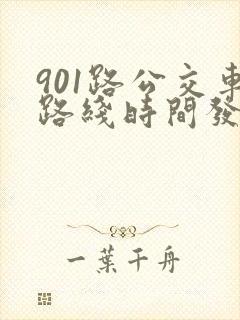 901路公交車
路綫時間發
一葉千舟